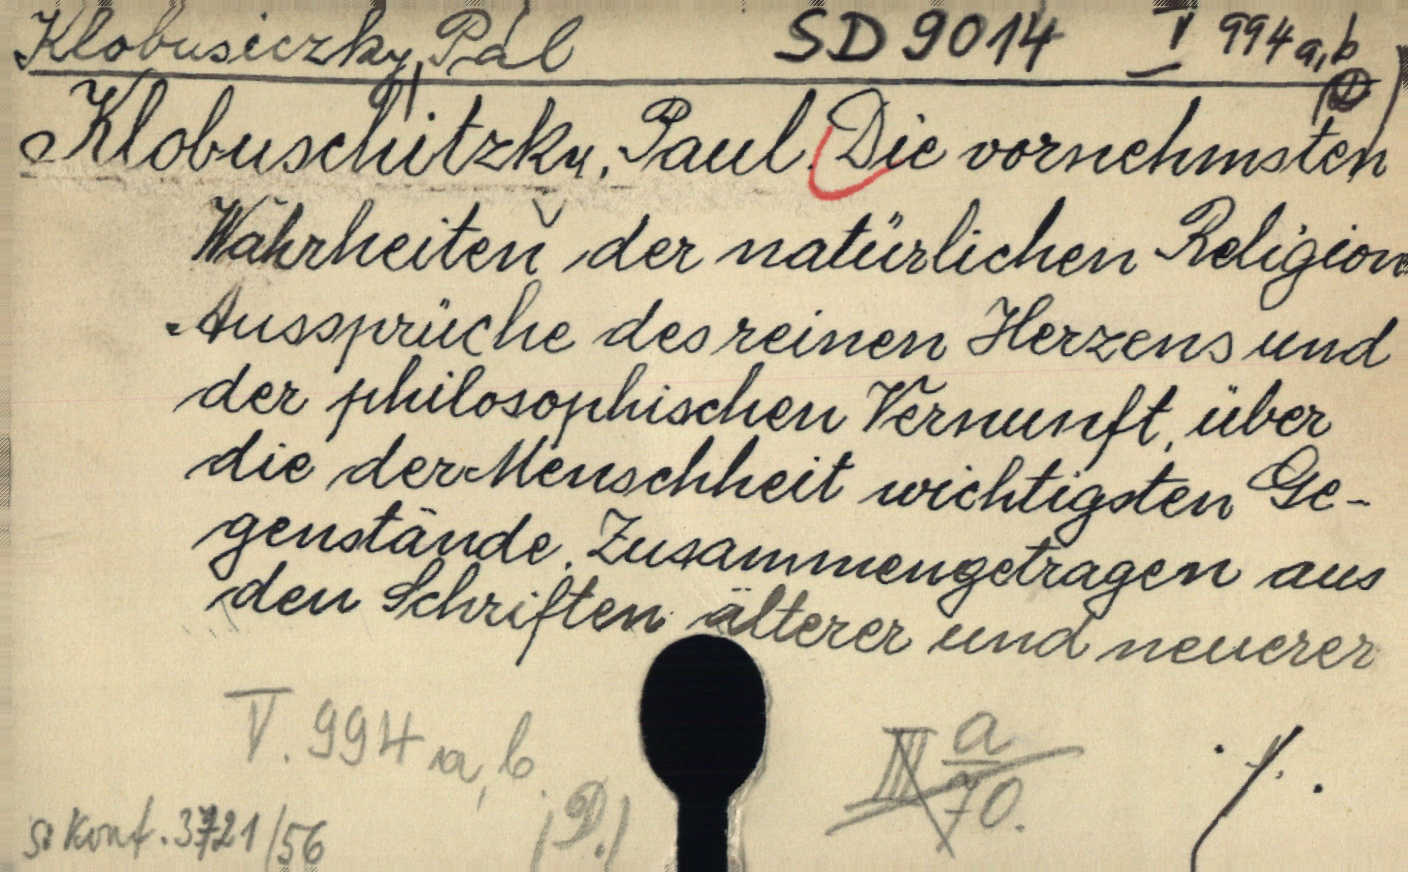 Klobusiczky, Pál SD 9014 V 994 a, b
(D)
Klobuschitzky, Paul. Die vornehmsten
Wahrheiten der natürlichen Religion
Aussprüche des reinen Herzens und
der philosophischen Vernunft, über
die der Menschheit wichtigsten Ge-
genstände. Zusammengetragen aus
den Schriften älterer und neuerer
V. 994 a, b.
(D.)
III a/70.
s: Konf. 3721/56